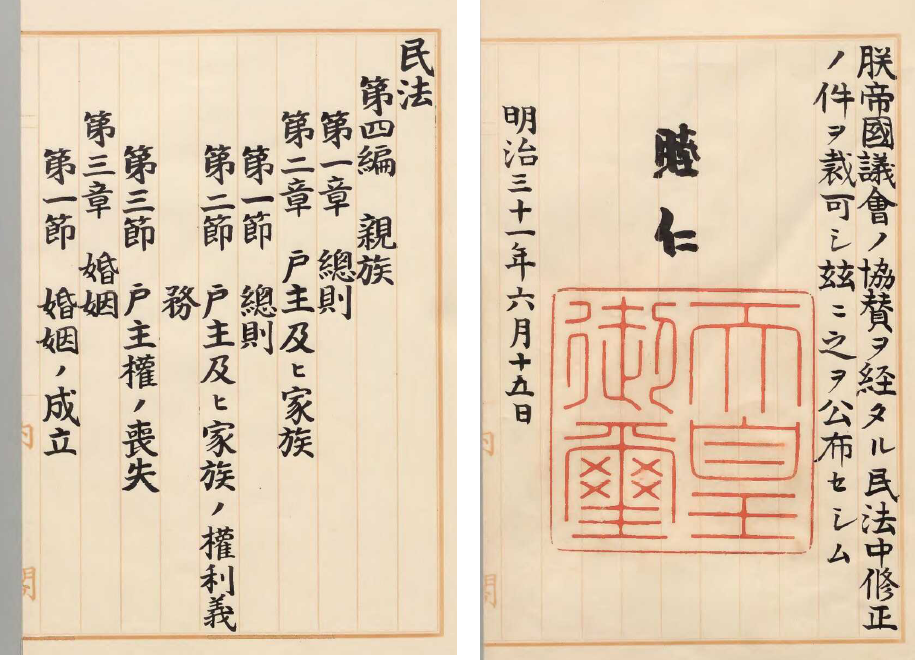 朕帝國議會ノ協賛ヲ経タル民法中修正
ノ件ヲ裁可シ玆ニ之ヲ公布セシム
睦仁
天皇
御璽
明治三十一年六月十五日
民法
第四編 親族
第一章 總則
第二章 戸主及ヒ家族
第一節 總則
第二節 戸主及ヒ家族ノ權利義
務
第三節 戸主權ノ喪失
第三章 婚姻
第一節 婚姻ノ成立
内
閣